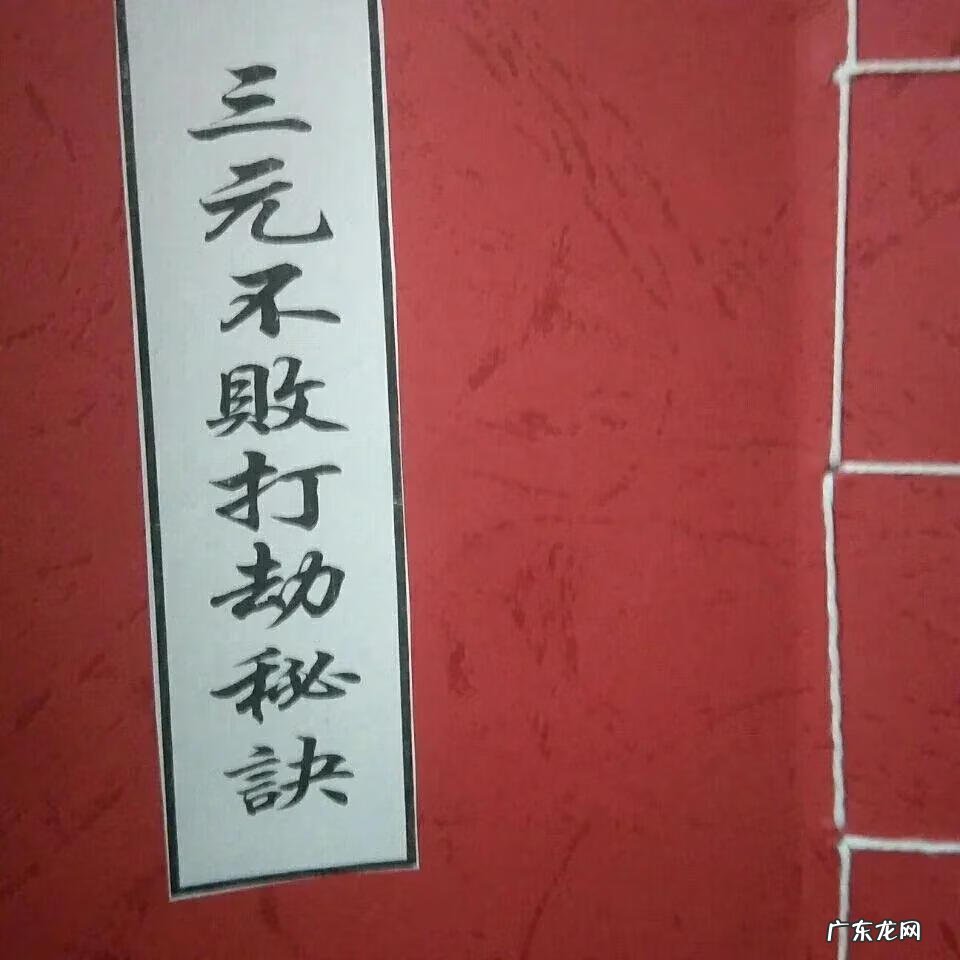 三元不敗打劫秘訣
广东龙网